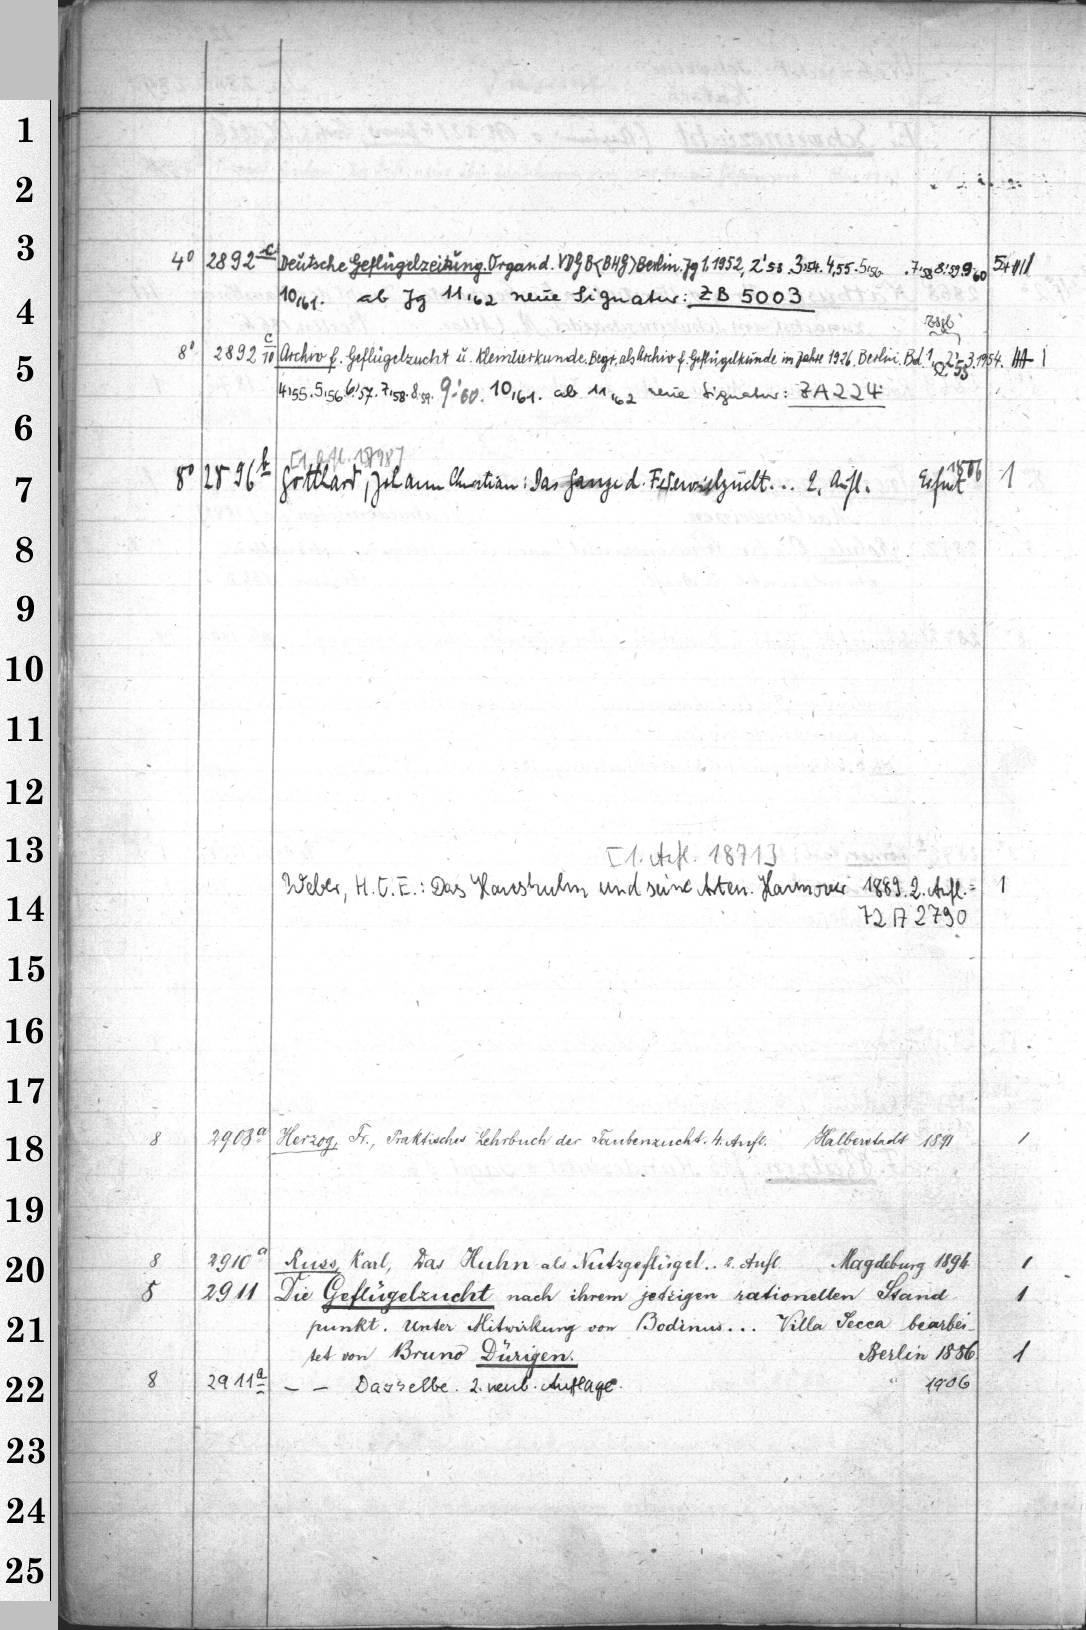 1
2
3
4° 2892 c Deutsche Geflügelzeitung. Organ d. VDGB (BHG) Berlin. Jg 1.1952, 2'53. 3,54. 4,55. 5,56 . 7,58 8,59 9,60
10,61. ab Jg 11,62 neue Signatur: ZB 5003
4
8° 2892 c/10 Archiv f. Geflügelzucht u. Kleintierkunde. Begr. als Archiv f. Geflügelkunde im Jahre 1926. Berlin. Bd. 1,52 2'53 3.1954. 1
5
4,55. 5,56 6,57. 7,58. 8,59. 9,60. 10,61. ab 11,62 neue Signatur: ZA 224
6
[1. Afl. 1798]
8° 2896 b Gotthard, Johann Christian: Das Ganze d. Federviehzucht... 2. Aufl. Erfurt 1806 1
7
8
9
10
11
12
13
[1. Aufl. 1871]
Weber, H.C.E.: Das Haushuhn und seine Arten. Hannover 1889. 2. Aufl. = 1
14
72 A 2790
15
16
17
8 2908 a Herzog, Fr., Praktisches Lehrbuch der Taubenzucht. 4. Aufl. Halberstadt 1891 1
18
19
8 2910 a Russ, Karl, Das Huhn als Nutzgeflügel.. 2. Aufl. Magdeburg 1894 1
20
8 2911 Die Geflügelzucht nach ihrem jetzigen rationellen Stand- 1
21
punkt. Unter Mitwirkung von Bodinus... Villa Secca bearbei-
tet von Bruno Dürigen. Berlin 1886 1
8 2911 a — — Dasselbe. 2. neub. Auflage. " 1906
22
23
24
25